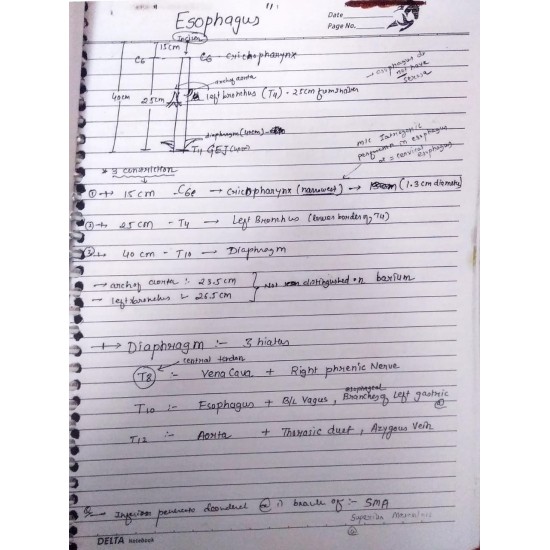 Esophagus
Date
Page No.
Incisor
15cm
C6
C6 - Crichopharynx
arch of aorta
esophagus do not have serosa
40cm
25cm
left bronchus (T4) - 25cm from incisor
diaphragm (40cm)
T11 GEJ
m/c Iatrogenic perforation in esophagus = cervical esophagus
* 3 constriction
① 15 cm - C6 → Crichopharynx (narrowest) → (1.3 cm diameter)
② 25 cm - T4 → Left Bronchus (lower border of T4)
③ 40 cm - T10 → Diaphragm
→ arch of aorta :- 23.5cm
- left bronchus :- 26.5cm
Not distingushed on barium
→ Diaphragm :- 3 hiatus
central tendon
T8 :- Vena Cava + Right phrenic Nerve
T10 :- Esophagus + B/L Vagus, esophageal Branches of Left gastric
T12 :- Aorta + Thorasic duct, Azygous Vein
Inferior is branch of :- SMA
Superior
DELTA Notebook